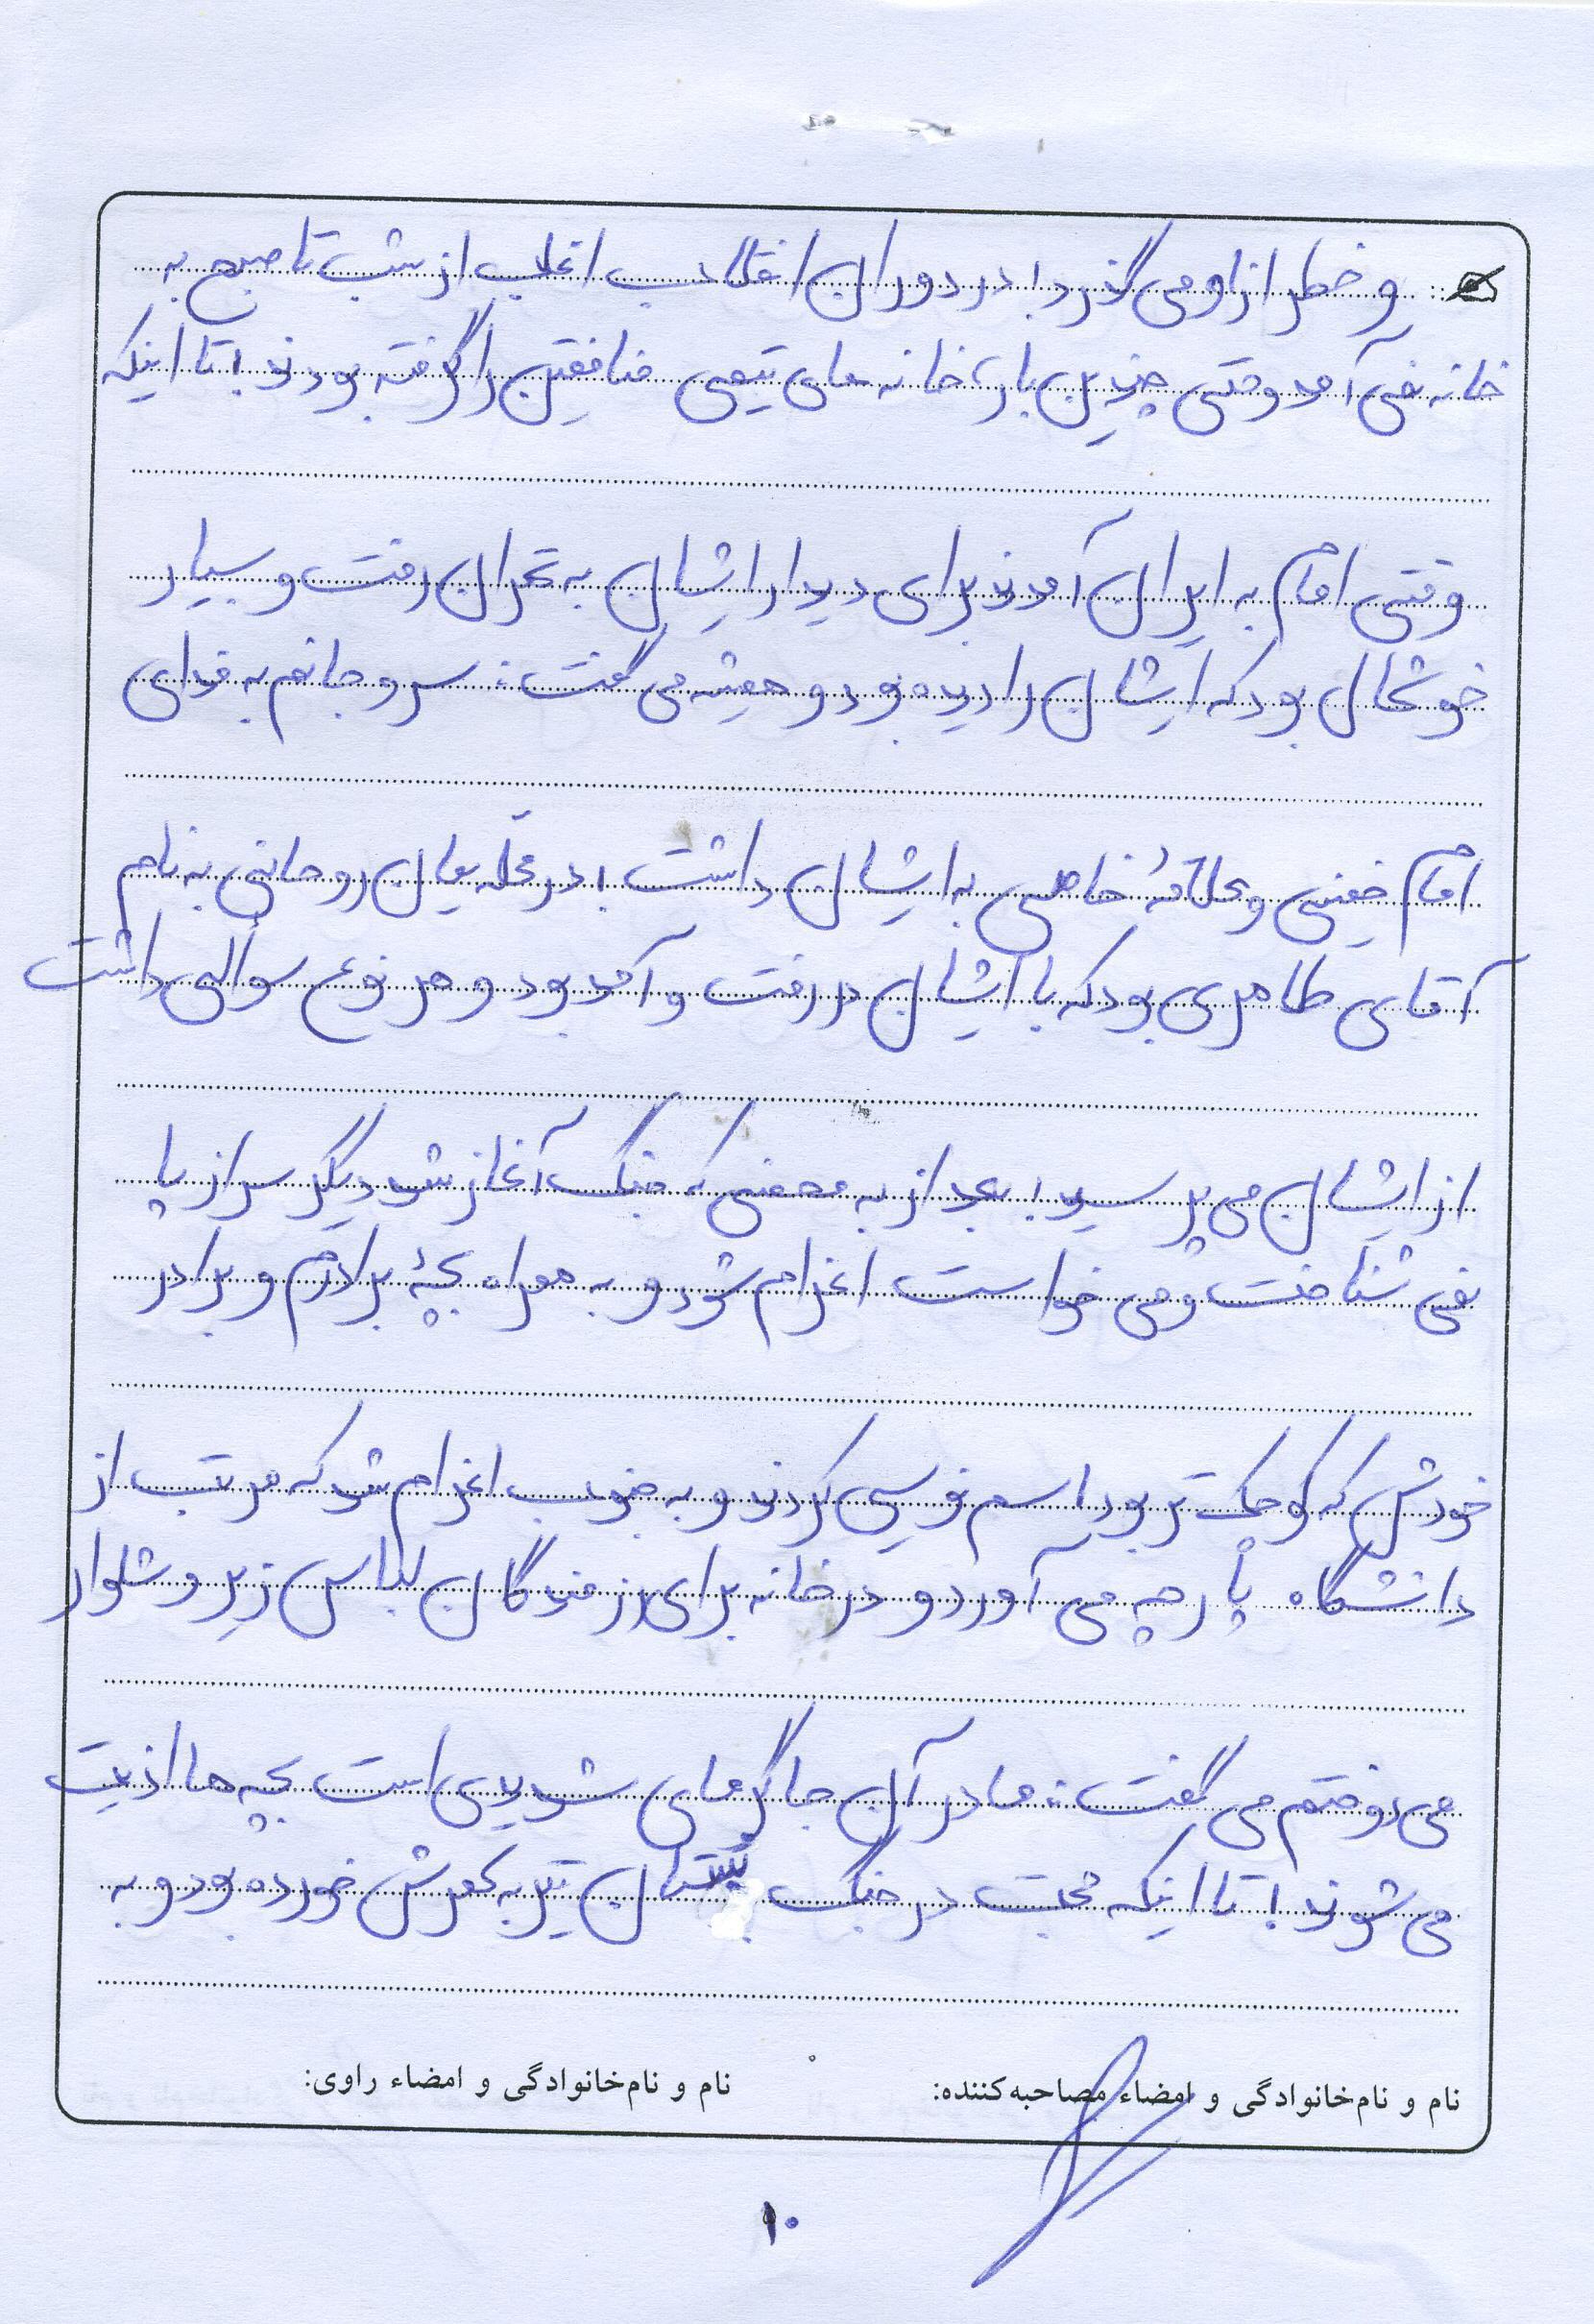 و خطر از او می گذرد! در دوران انقلاب اغلب از شب تا صبح به
خانه نمی آمد وقتی چندین بار، خانه های تیمی منافقین را گرفته بودند! تا اینکه
وقتی امام به ایران آمدند برای دیدار ایشان به تهران رفت و بسیار
خوشحال بود که ایشان را دیده بود و همیشه می گفت: سر و جانم به فدای
امام خمینی و علاقهٔ خاصی به ایشان داشت! در محلّه یمان روحانی به نام
آقای طاهری بود که با ایشان در رفت و آمد بود و هر نوع سوألی داشت
از ایشان می پرسید! بعد از به محضی که جنگ آغاز شد دیگر سر از پا
نمی شناخت و می خواست اعزام شود و به همراه بچهٔ برادرم و برادر
خودش که کوچک تر بود اسم نویسی کردند و به جنوب اعزام شد که مرتب از
دانشگاه پارچه می آورد و در خانه برای رزمندگان لباس زیر و شلوار
می دوختم می گفت: مادر آن جا گرمای شدیدی است بچه ها اذیت
می شوند! تا اینکه محبت در جنگ بستان تیر به کمرش خورده بود و به
نام و نام‌خانوادگی و امضاء مصاحبه‌کننده: نام و نام‌خانوادگی و امضاء راوی:
۱۰